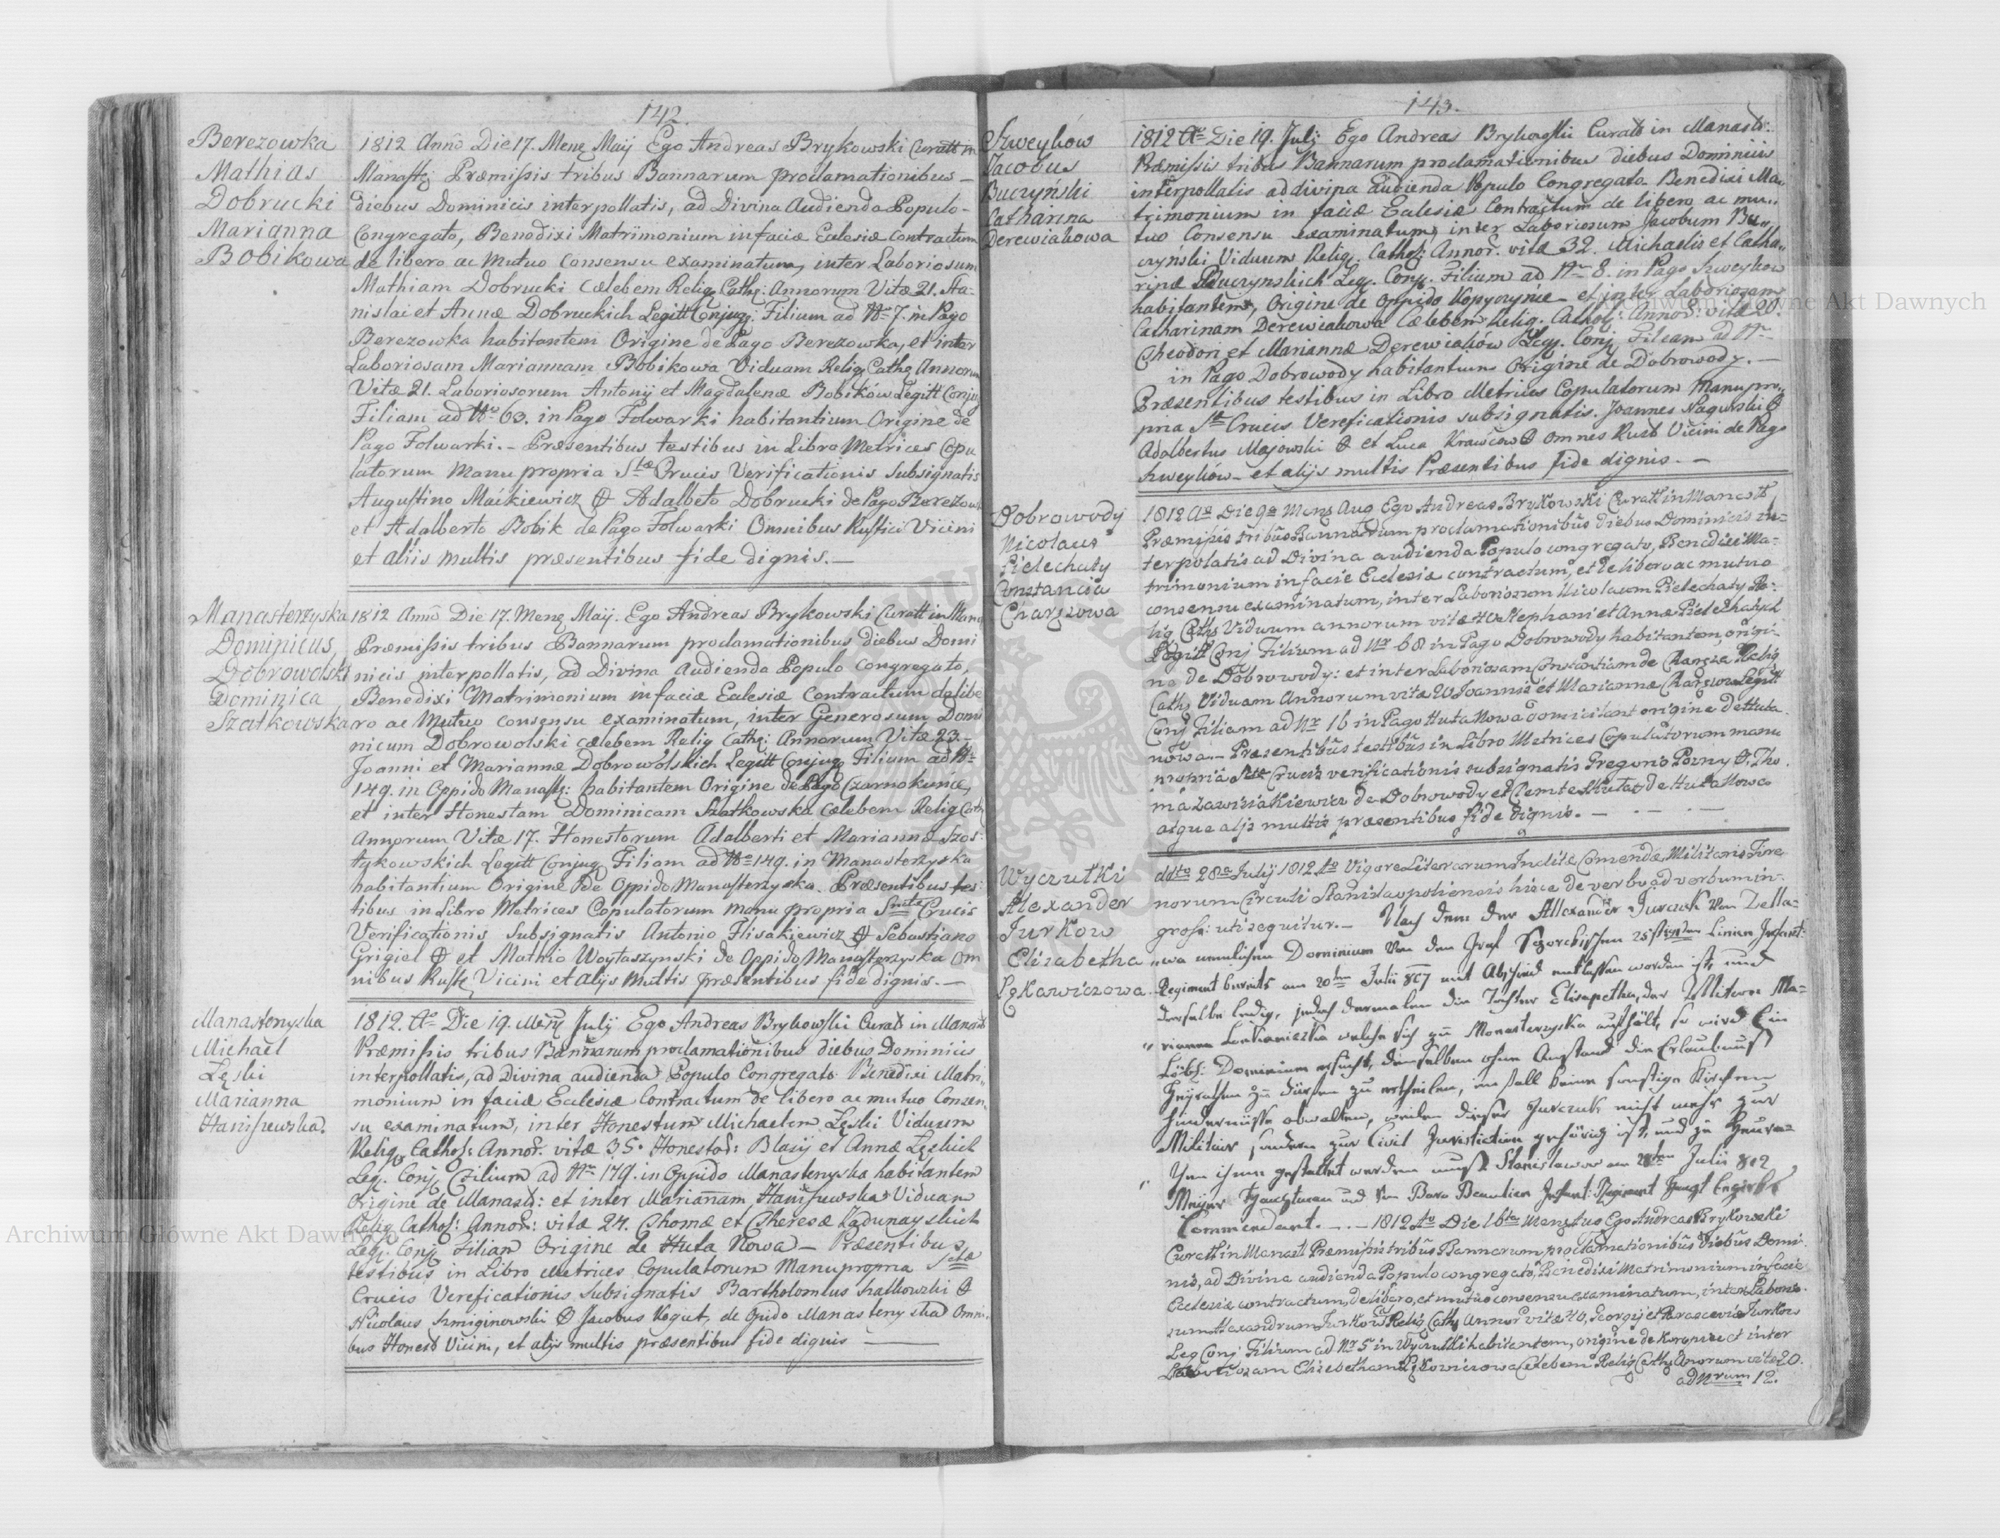 142.
Berezowka
Mathias
Dobrucki
Marianna
Bobikowa
1812 Anno Die 17. Mens Maij Ego Andreas Brykowski Curatt in
Manast: Præmissis tribus Bannarum proclamationibus
diebus Dominicis interpollatis, ad Divina Audienda Populo-
Congregato, Benedixi Matrimonium in faciæ Eclesiæ contractum
de libero ac Mutuo Consensu examinatum, inter Laboriosum
Mathiam Dobrucki Cælebem Relig Cath: Annorum Vitæ 21. Sta-
nislai et Annæ Dobruckich Legitt Conjug: Filium ad Nro 7. in Pago
Berezowka habitantem Origine de Pago Berezowka, et inter
Laboriosam Mariannam Bobikowa Viduam Relig Cath Annorum
Vitæ 21. Laboriosorum Antonij et Magdalenæ Bobików Legitt Conju
Filiam ad Nro 63. in Pago Folwarki habitantium Origine de
Pago Folwarki. - Præsentibus testibus in Libro Metrices Copu
latorum Manu propria Stæ Crucis Verificationis Subsignatis
Augustino Maćkiewicz Adalbeto Dobrucki de Pago Berezow
et Adalberto Bobik de Pago Folwarki Omnibus Rustici Vicini
et aliis multis præsentibus fide dignis. —
Manasterzyska
Dominicus
Dobrowolski
Dominica
Szatkowska
1812 Anno Die 17. Mens Maij. Ego Andreas Brykowski Curatt in Mana
Præmissis tribus Bannarum proclamationibus diebus Domi
nicis interpollatis, ad Divina Audienda Populo Congregato.
Benedixi Matrimonium in faciæ Eclesiæ Contractum de libe
ro ac Mutuo consensu examinatum, inter Generosum Domi
nicum Dobrowolski cælebem Relig Cath: Annorum Vitæ 23.-
Joanni et Mariannæ Dobrowolskich Legitt Conjug Filium ad Nro
149. in Oppido Manast: habitantem Origine de Pago Czarnokonce,
et inter Honestam Dominicam Szatkowska Cælebem Relig Cath
Annorum Vitæ 17. Honestorum Adalberti et Mariannæ Szos-
tykowskich Legitt Conjug Filiam ad Nro 149. in Manasterzyska
habitantium Origine de Oppido Manasterzyska. Præsentibus tes:
tibus in Libro Metrices Copulatorum Manu propria Crucis
Verificationis Subsignatis Antonio Flisakiewicz Sebastiano
Grigiel et Mathio Woytaszynski de Oppido Manasterzyska Om
nibus Vicini et Alijs Multis præsentibus fide dignis. —
Manasterzyska
Michael
Łęski
Marianna
Haniszewska.
1812. Ao Die 19. July Ego Andreas Brykowski Curatt in Manast
Præmissis tribus Bannarum proclamationibus diebus Dominicis
interpollatis, ad Divina audienda Populo Congregato Benedixi Matri
monium in faciæ Ecclesiæ Contractum de libero ac mutuo Consen
su examinatum, inter Honestum Michaelem Łęski Viduum
Relig Cathol: Annor: vitæ 35. Honestor: Blasij et Annæ Łęskich
Leg. Conj. Filium ad Nro 179. in Oppido Manasterzyska habitantem
Origine de Manast: et inter Mariannam Haniszewska Viduam
Relig Cathol: Annor: vitæ 24. Thomæ et Theresæ Kadunayskich
Leg: Conj Filiam Origine de Huta Nowa — Præsentibus
testibus in Libro Metrices Copulatorum Manu propria Stæ
Crucis Vereficationis Subsignatis Bartholomeus Szatkowski
Nicolaus Szmiginowski Jacobus Kogut, de Opido Manasterzyska Omni-
bus Honest Vicini, et alijs multis præsentibus fide dignis —
143.
Szweyków
Jacobus
Buczyński
Catharina
Derewiakowa
1812 Ao Die 19. July Ego Andreas Brykowski Curatt in Manast:
Præmissis tribus Bannarum proclamationibus diebus Dominicis
interpollatis ad divina Audienda Populo Congregato Benedixi Ma-
trimonium in faciæ Eclesiæ Contractum de libero ac mu-
tuo Consensu examinatum inter Laboriosum Jacobum Bu-
czynski Viduum Relig: Cathol: Annor: vitæ 32. Michaelis et Catha-
rinæ Buczynskich Leg: Conj: Filium ad Nro 8. in Pago Szweykow
habitantem, Origine de Oppido Kopyczynie — et inter Laboriosam
Catharinam Derewiakowa Cælebem Relig. Cathol: Annor: vitæ 20.
Theodori et Mariannæ Derewiaków Leg: Conj. Filiam ad Nro
in Pago Dobrowody habitantium Origine de Dobrowody. —
Præsentibus testibus in Libro Metrices Copulatorum Manu pro-
pria Stæ Crucis Vereficationis subsignatis. Joannes Nagurski
Adalbertus Majowski et Luca Krawców omnes Rust Vicini de Pago
Szweyków - et alijs multis Præsentibus fide dignis. —
Dobrowody
Nicolaus
Pielechaty
Constancia
Charęzowa
1812 Ao Die 9a Mens Aug Ego Andreas Brykowski Curatt in Manast
Præmissis tribus Bannarum proclamationibus diebus Dominicis in-
terpolatis ad Divina audienda Populo congregato, Benedixi Ma-
trimonium in facie Eclesiæ contractum, et de libero ac mutuo
consensu examinatum, inter Laboriosum Nicolaum Pielechaty Re-
lig Cath Viduum annorum vitæ Stephani et Annæ Pielechatych
Legitt Conj Filium ad Nro 68 in Pago Dobrowody habitantem, origi-
ne de Dobrowody: et inter Laboriosam Constantiam de Relig
Cath Viduam Annorum vitæ 20 Joannis et Mariannæ Legitt
Conj Filiam ad Nro 16 in Pago Huta Nowa origine de Huta
nowa — Præsentibus testibus in Libro Metrices Copulatorum manu
propria Stæ Crucis verificationis subsignatis Tho
ma de Dobrowody et de Huta Nowa
atque alijs multis præsentibus fide dignis. —
Wyczutki
Alexander
Jurkow
Elizabetha
Łękawiczowa
dato 28a July 1812 Ao Vigore Literarum Inclitæ Comendæ Militaris
norum Circuli Stanislaopoliensis hisce de verbo ad verbum in-
gross: uti sequitur. — Nach dem der Allexander Jurczuk von
Dominium von dem Graf Linien Infant:
Regiment bereits am 20ten Julii 807 mit Abschied entlassen worden ist, und
derselbe ledig, jedoch dermalen die Tochter Elisapetha, der Witwe Ma-
rianna welche sich zu Monasterzyska aufhält, so wird Ein
Löbl: Dominium ersucht, demselben ohne Anstand die Erlaubnuß
Heyrathen zu dürfen zu ertheilen, im fall keine sonstige Kirchen
hindernüsse obwalten, weilen dieser Jurczuk nicht mehr zur
Militair sondern zur Civil Jurisdiction gehörig ist, und zu Heura-
then ihm gestattet werden muß. Stanislawow am 28ten Julii 812
Hauptmann und von Baro Infant: Regiment
Commendant. — 1812 Ao Die 16ta Ego Andreas Brykowski
Curatt in Manast Præmissis tribus Bannarum proclamationibus diebus Domi-
nis, ad Divina audienda Populo congregato, Benedixi Matrimonium in facie
Eclesiæ contractum, de libero, et mutuo consensu examinatum, inter Laborio-
sum Alexandrum Jurków Relig Cath Annor vitæ 40, Georgij et Parasceviæ Jurkow
Leg Conj Filium ad Nro 5 in Wyczutki habitantem, origine de et inter
Laboriosam Elisebetham Cælebem Relig Cath Anorum vitæ 20.
ad Nrum 12.
Archiwum Główne Akt Dawnych
Archiwum Główne Akt Dawnych